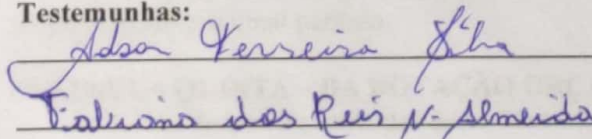 Testemunhas:
Adson Ferreira Silva
Fabiana dos Reis N. Almeida